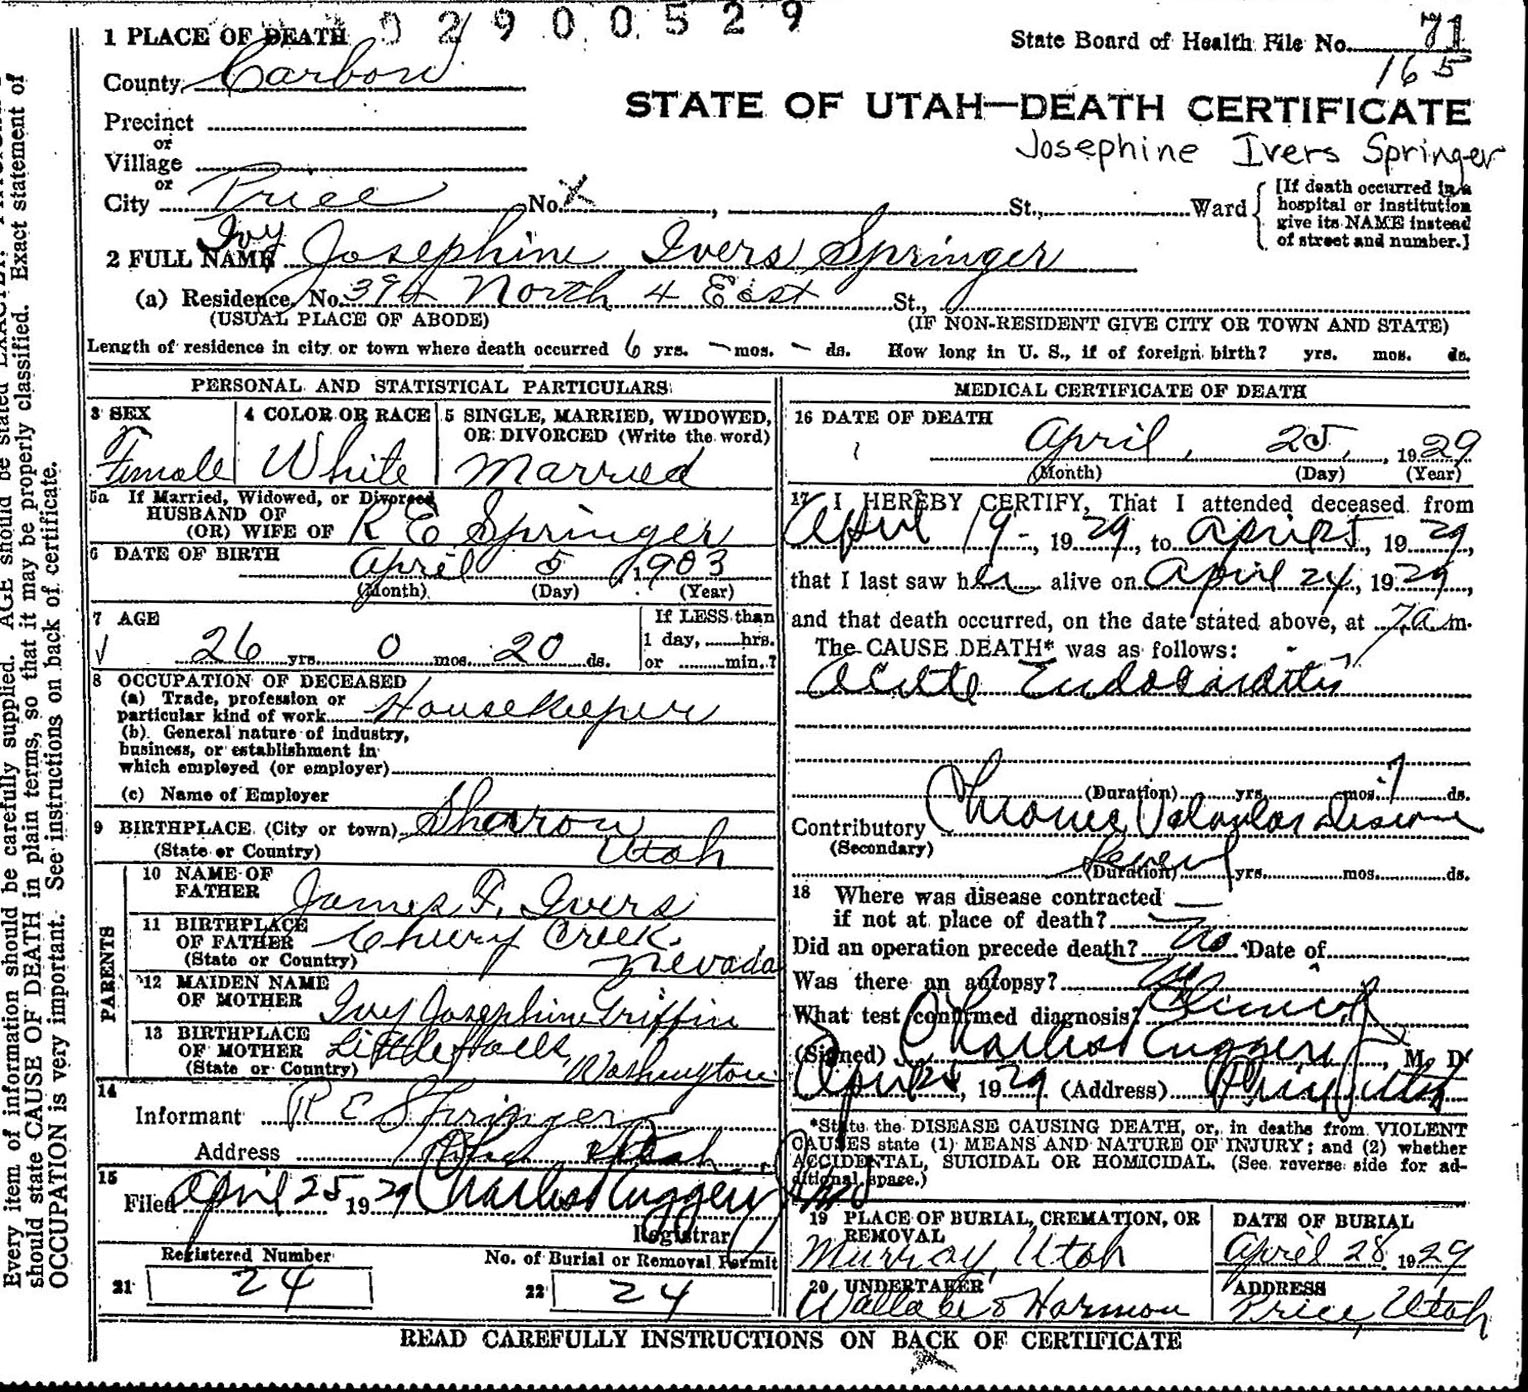 02900529
1 PLACE OF DEATH
State Board of Health File No. 71
165
County Carbon
STATE OF UTAH—DEATH CERTIFICATE
Precinct
Josephine Ivers Springer
or
Village
or
City Price No. X St., Ward
[If death occurred in a
hospital or institution
give its NAME instead
of street and number.]
Ivy
2 FULL NAME Josephine Ivers Springer
(a) Residence. No. 394 North 4 East St.,
(USUAL PLACE OF ABODE) (IF NON-RESIDENT GIVE CITY OR TOWN AND STATE)
Length of residence in city or town where death occurred 6 yrs. - mos. - ds. How long in U. S., if of foreign birth? yrs. mos. ds.
PERSONAL AND STATISTICAL PARTICULARS
3 SEX
Female
4 COLOR OR RACE
White
5 SINGLE, MARRIED, WIDOWED,
OR DIVORCED (Write the word)
Married
5a If Married, Widowed, or Divorced
HUSBAND OF
(OR) WIFE OF R E Springer
6 DATE OF BIRTH
April 5, 1903
(Month) (Day) (Year)
7 AGE
26 yrs. 0 mos. 20 ds.
If LESS than
1 day, hrs.
or min.?
8 OCCUPATION OF DECEASED
(a) Trade, profession or
particular kind of work Housekeeper
(b) General nature of industry,
business, or establishment in
which employed (or employer)
(c) Name of Employer
9 BIRTHPLACE (City or town) Sharon
(State or Country) Utah
PARENTS
10 NAME OF
FATHER James F. Ivers
11 BIRTHPLACE
OF FATHER Cherry Creek,
(State or Country) Nevada
12 MAIDEN NAME
OF MOTHER Ivy Josephine Griffin
13 BIRTHPLACE
OF MOTHER Little Falls,
(State or Country) Washington
14
Informant R E Springer
Address Price Utah
15
Filed April 25 1929 Charles Ruggeri
Registrar
Registered Number
21 24
No. of Burial or Removal Permit
22 24
MEDICAL CERTIFICATE OF DEATH
16 DATE OF DEATH
April, 25, 1929
(Month) (Day) (Year)
17 I HEREBY CERTIFY, That I attended deceased from
April 19-, 1929, to April 25, 1929,
that I last saw her alive on April 24, 1929,
and that death occurred, on the date stated above, at 7 a m.
The CAUSE DEATH* was as follows:
Acute Endocarditis
(Duration) yrs. mos. 7 ds.
Contributory Chronic Valvular Disease
(Secondary)
(Duration) Several yrs. mos. ds.
18 Where was disease contracted
if not at place of death?
Did an operation precede death? No Date of
Was there an autopsy? No
What test confirmed diagnosis? Clinical
(Signed) Charles Ruggeri, M. D
April 25, 1929 (Address) Price Utah
*State the DISEASE CAUSING DEATH, or, in deaths from VIOLENT
CAUSES state (1) MEANS AND NATURE OF INJURY; and (2) whether
ACCIDENTAL, SUICIDAL OR HOMICIDAL. (See reverse side for ad-
ditional space.)
19 PLACE OF BURIAL, CREMATION, OR
REMOVAL
Murray, Utah
DATE OF BURIAL
April 28, 1929
20 UNDERTAKER
Wallace & Harmon
ADDRESS
Price, Utah
READ CAREFULLY INSTRUCTIONS ON BACK OF CERTIFICATE
Every item of information should be carefully supplied. AGE should be stated EXACTLY.
should state CAUSE OF DEATH in plain terms, so that it may be properly classified. Exact statement of
OCCUPATION is very important. See instructions on back of certificate.